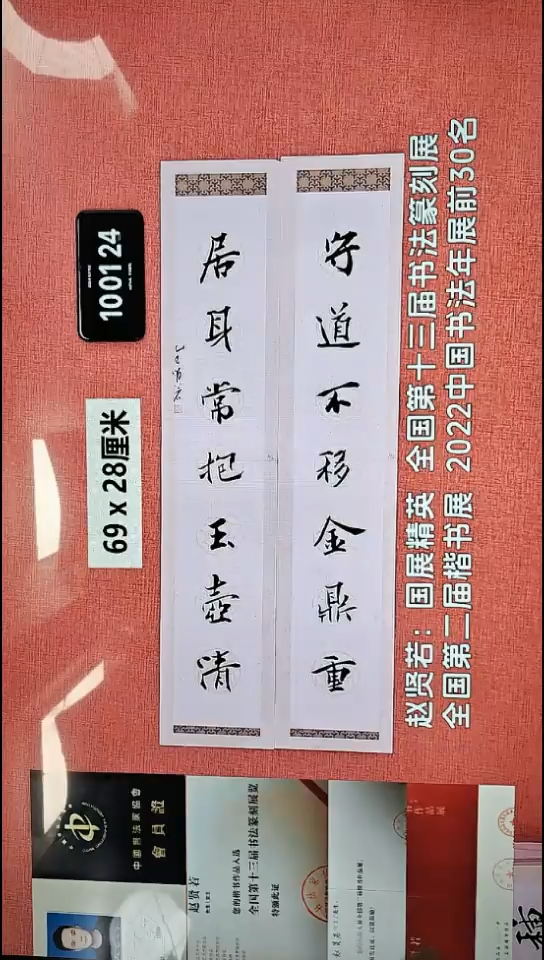 守道不移金鼎重
居身常把玉壶清
100124
69 x 28厘米
赵贤若：国展精英 全国第十三届书法篆刻展
全国第二届楷书展 2022中国书法年展前30名
中國書法家協會
會員證
赵贤若
您的楷书作品入选
全国第十三届书法篆刻展览
特颁此证